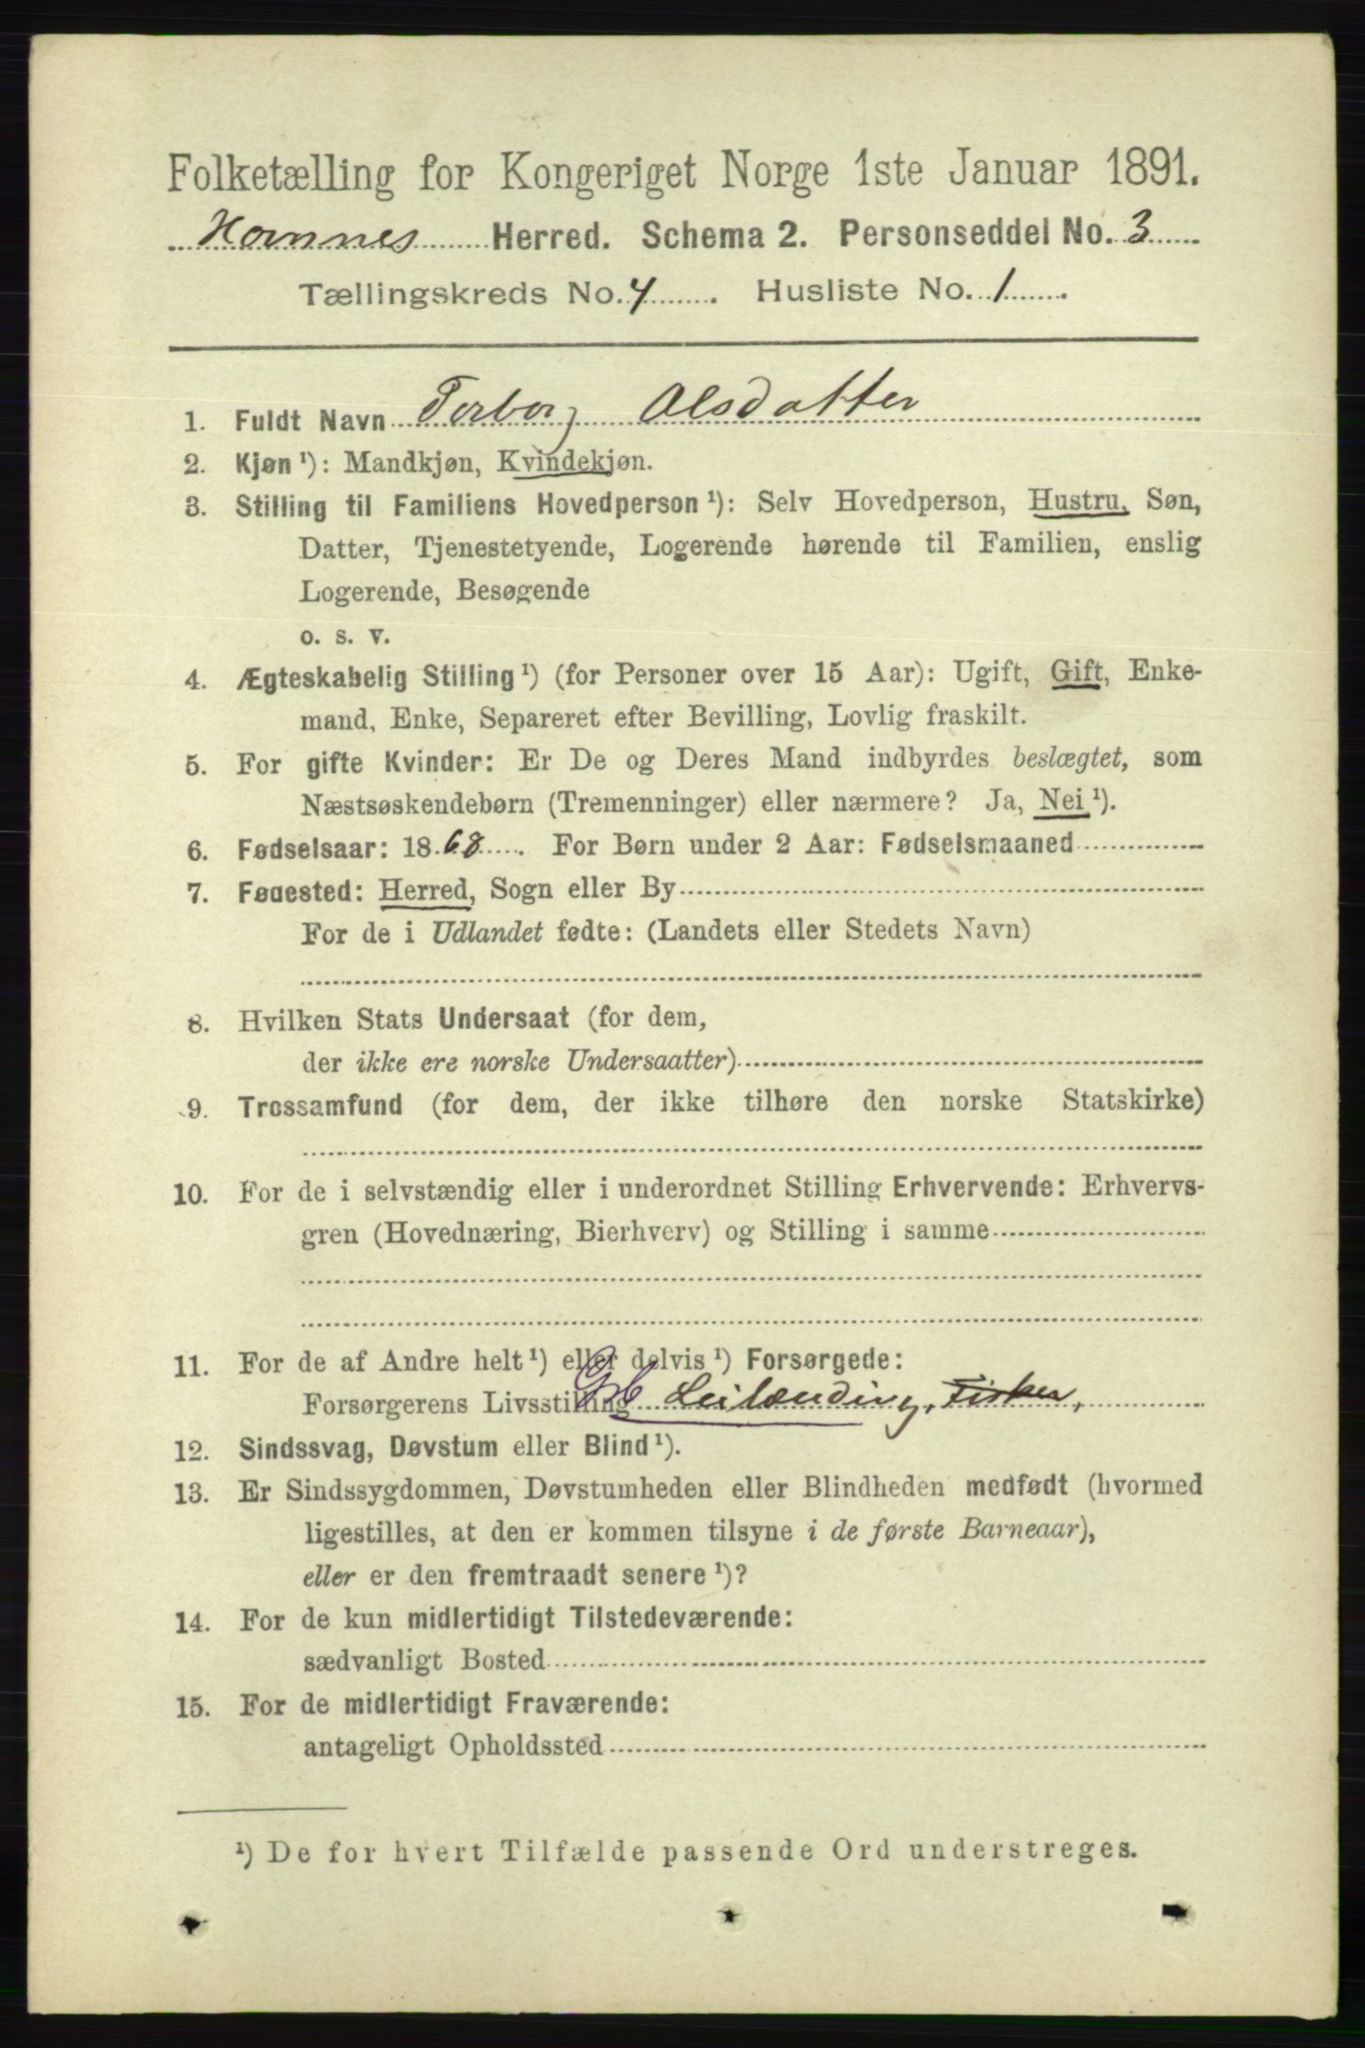 Folketælling for Kongeriget Norge 1ste Januar 1891.
Hamnes Herred. Schema 2. Personseddel No. 3
Tællingskreds No. 4. Husliste No. 1.
1. Fuldt Navn Torborg Olsdatter
2. Kjøn ¹): Mandkjøn, Kvindekjøn.
3. Stilling til Familiens Hovedperson ¹): Selv Hovedperson, Hustru, Søn,
Datter, Tjenestetyende, Logerende hørende til Familien, enslig
Logerende, Besøgende
o. s. v.
4. Ægteskabelig Stilling ¹) (for Personer over 15 Aar): Ugift, Gift, Enke-
mand, Enke, Separeret efter Bevilling, Lovlig fraskilt.
5. For gifte Kvinder: Er De og Deres Mand indbyrdes beslægtet, som
Næstsøskendebørn (Tremenninger) eller nærmere? Ja, Nei ¹).
6. Fødselsaar: 1868. For Børn under 2 Aar: Fødselsmaaned
7. Fødested: Herred, Sogn eller By
For de i Udlandet fødte: (Landets eller Stedets Navn)
8. Hvilken Stats Undersaat (for dem,
der ikke ere norske Undersaatter)
9. Trossamfund (for dem, der ikke tilhøre den norske Statskirke)
10. For de i selvstændig eller i underordnet Stilling Erhvervende: Erhvervs-
gren (Hovednæring, Bierhverv) og Stilling i samme
11. For de af Andre helt ¹) eller delvis ¹) Forsørgede:
Forsørgerens Livsstilling Leilænding, Fisker,
12. Sindssvag, Døvstum eller Blind ¹).
13. Er Sindssygdommen, Døvstumheden eller Blindheden medfødt (hvormed
ligestilles, at den er kommen tilsyne i de første Barneaar),
eller er den fremtraadt senere ¹)?
14. For de kun midlertidigt Tilstedeværende:
sædvanligt Bosted
15. For de midlertidigt Fraværende:
antageligt Opholdssted
¹) De for hvert Tilfælde passende Ord understreges.